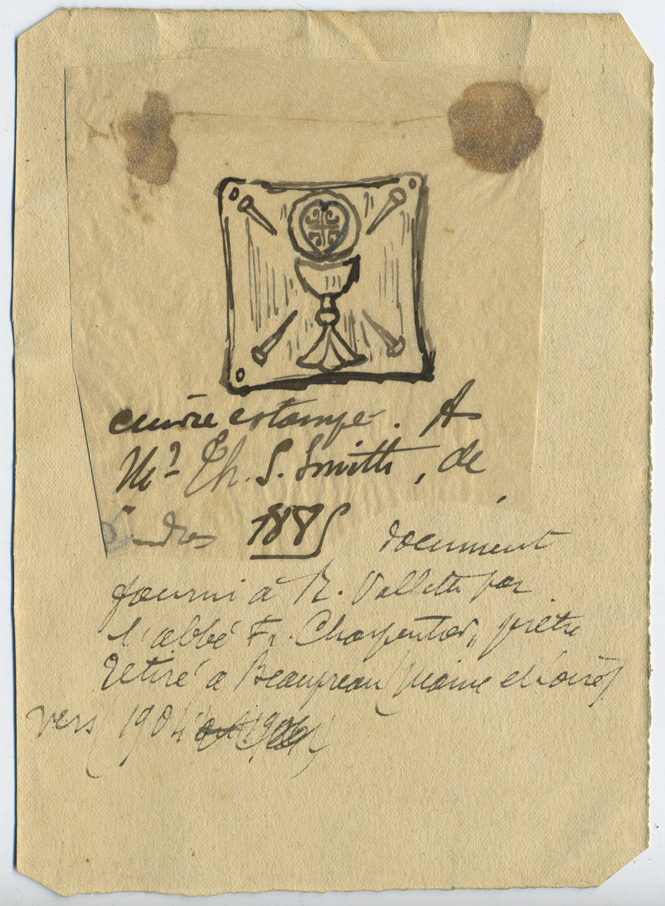 cuivre estampé. A
Mr Ch. S. Smith, de
Londres 1885 document
fourni à R. Vallette par
l'abbé Fr. Charpentier, prêtre
retiré à Beaupreau (Maine et Loire)
vers 1904